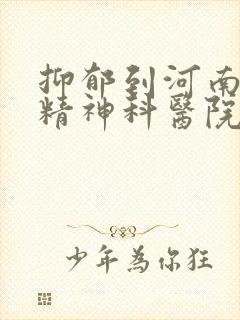 抑郁到河南
精神科醫院
少年為你狂